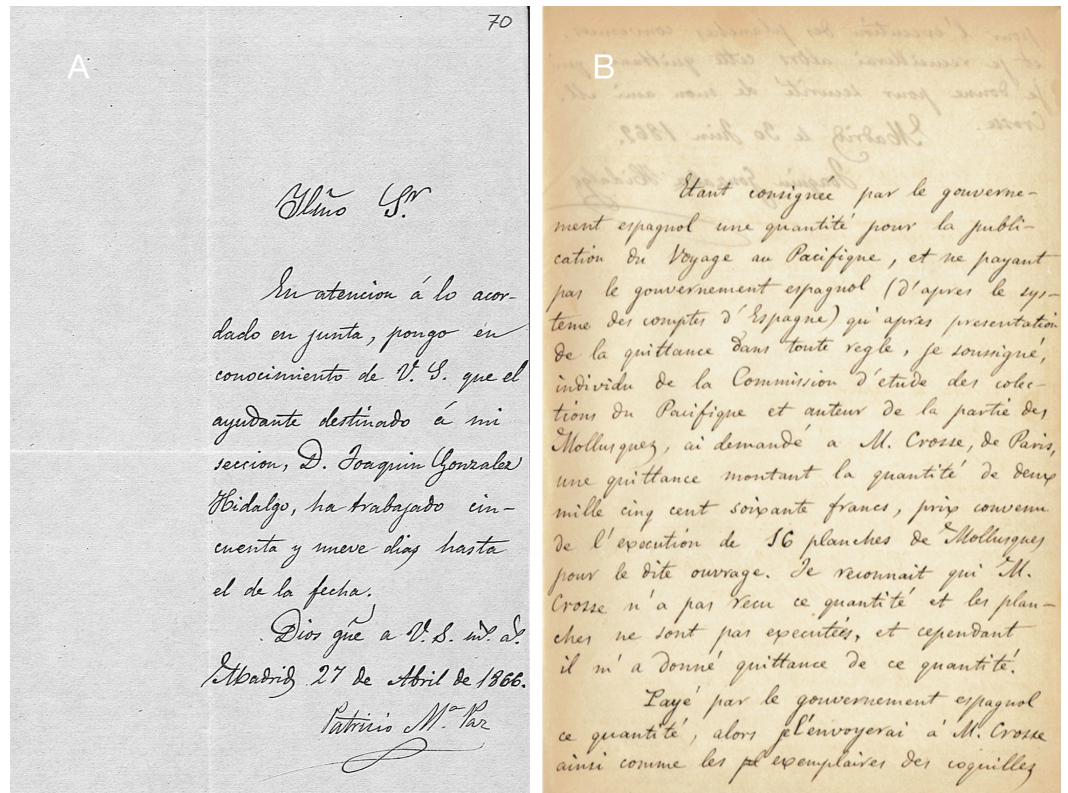 70
A
Ilmo Sr.
En atencion á lo acor-
dado en junta, pongo en
conocimiento de V. S. que el
ayudante destinado á mi
seccion, D. Joaquin Gonzalez
Hidalgo, ha trabajado cin-
cuenta y nueve dias hasta
el de la fecha.
Dios gue a V. S. ms. as.
Madrid 27 de Abril de 1866.
Patricio Ma. Paz
B
pour l'execution des planches convenues,
et je remettrai alors cette quittance qui
je donne pour securité de mon ami M.
Crosse.
Madrid le 30 Juin 1869.
Joaquin Gonzalez Hidalgo
Etant consignée par le gouverne-
ment espagnol une quantité pour la publi-
cation du Voyage au Pacifique, et ne payant
pas le gouvernement espagnol (d'apres le sys-
teme des comptes d'Espagne) qu'apres presentation
de la quittance dans toute regle, je soussigné,
individu de la Commission d'etude des colec-
tions du Pacifique et auteur de la partie des
Mollusques, ai demandé a M. Crosse, de Paris,
une quittance montant la quantité de deux
mille cinq cent soixante francs, prix convenu
de l'execution de 16 planches de Mollusques
pour le dite ouvrage. Je reconnait qui M.
Crosse n'a pas recu ce quantité et les plan-
ches ne sont pas executées, et cependant
il m'a donné quittance de ce quantité.
Payé par le gouvernement espagnol
ce quantité, alors je l'envoyerai à M. Crosse
ainsi comme les exemplaires des coquilles